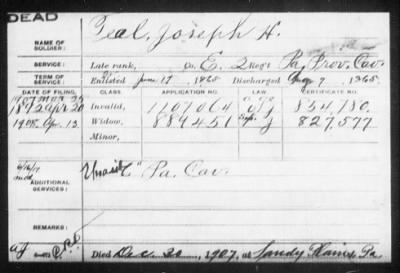 DEAD
NAME OF SOLDIER: Teal, Joseph H.
SERVICE: Late rank, Co. E, 2 Reg't Pa. Prov. Cav.
TERM OF SERVICE: Enlisted June 17, 1865 Discharged Aug 7, 1865
DATE OF FILING. CLASS. APPLICATION NO. LAW. CERTIFICATE NO.
1892 Apr 20 Invalid, 1107064 854,780
1908 Apr. 13 Widow, 889451 827,577
Minor,
ADDITIONAL SERVICES: " Pa. Cav.
REMARKS:
Died Dec. 30, 1907, at Sandy Plains Pa